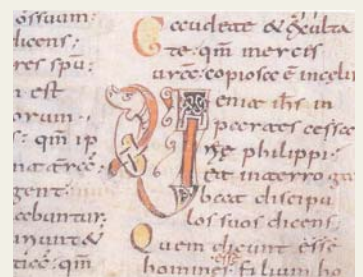 ossuam:
dicens:
res spu:
n est
orum.
s: qm ip
gent:
cebantur
tice: qm
Gaudete & exulta
te. qm merces
urã copiosa ẽ in celis
Uenit ihs in
partes cessa
ree philippi:
et interroga
bat discipu
los suos dicens:
Quem dicunt esse
homines filium ho